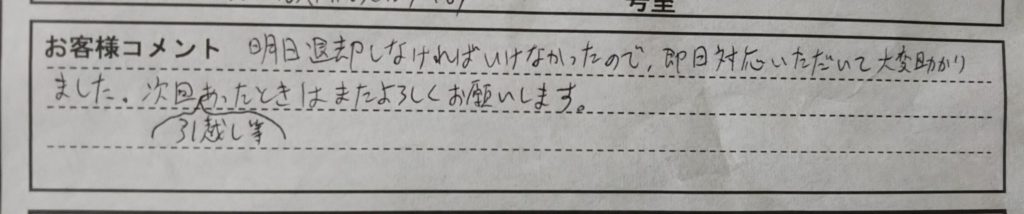 号室
お客様コメント 明日退却しなければいけなかったので、即日対応いただいて大変助かり
ました。次回あったときはまたよろしくお願いします。
引越し等